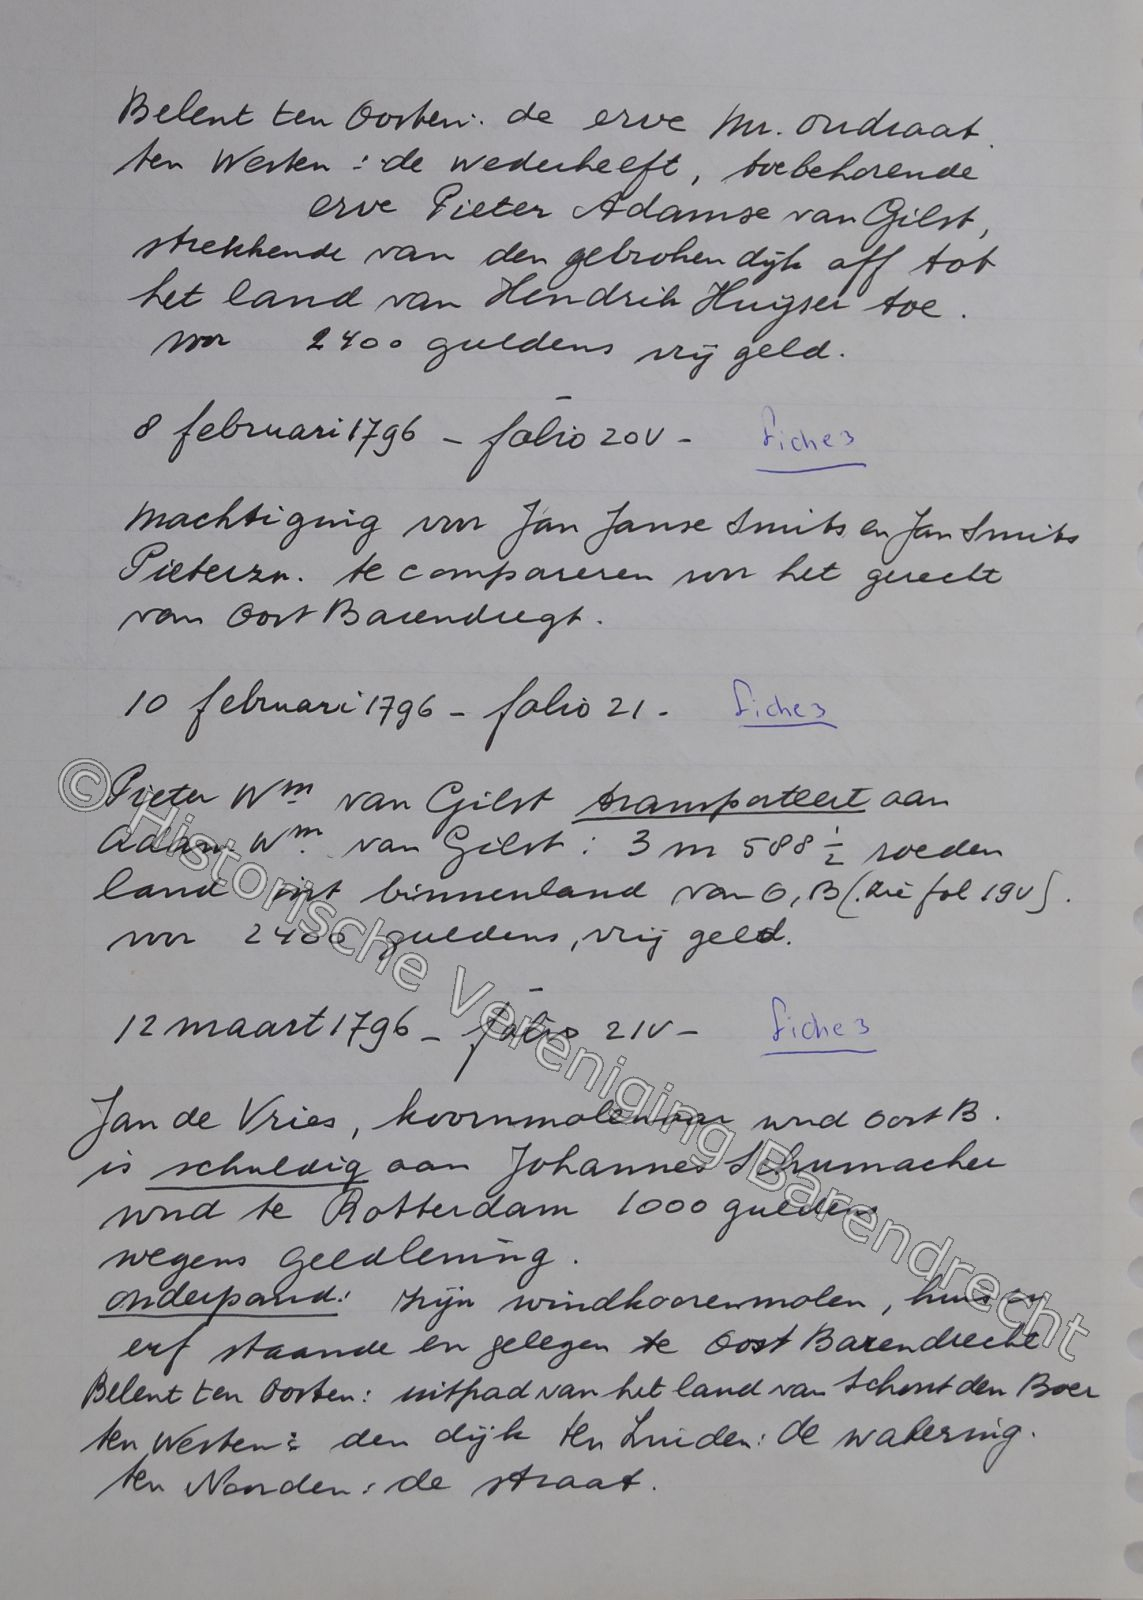 Belent ten Oosten: de erve Mr. Ondraat.
ten Westen: de wederheeft, toebehorende
erve Pieter Adamse van Gilst,
strekkende van den gebroken dijk aff tot
het land van Hendrik Huyser toe.
voor 2400 guldens vrij geld.
8 februari 1796 - folio 20V - fiche 3
Machtiging voor Jan Janse Smits en Jan Smits
Pieterzn. te compareren voor het gerecht
van Oost Barendregt.
10 februari 1796 - folio 21 - fiche 3
Pieter Wm van Gilst transporteert aan
Adam Wm. van Gilst: 3 m 588 1/2 roeden
land int binnenland van O,B (zie fol 19V).
voor 2400 guldens, vrij geld.
12 maart 1796 - folio 21V - fiche 3
Jan de Vries, koornmolenaar wnd Oost B.
is schuldig aan Johannes Schumacher
wnd te Rotterdam 1000 gulden
wegens geldlening.
onderpand: zijn windkoorenmolen, huis en
erf staande en gelegen te Oost Barendrecht
Belent ten Oosten: uitpad van het land van Schout den Boer
ten Westen: den dijk ten Zuiden: de watering.
ten Noorden: de straat.
© Historische Vereniging Barendrecht